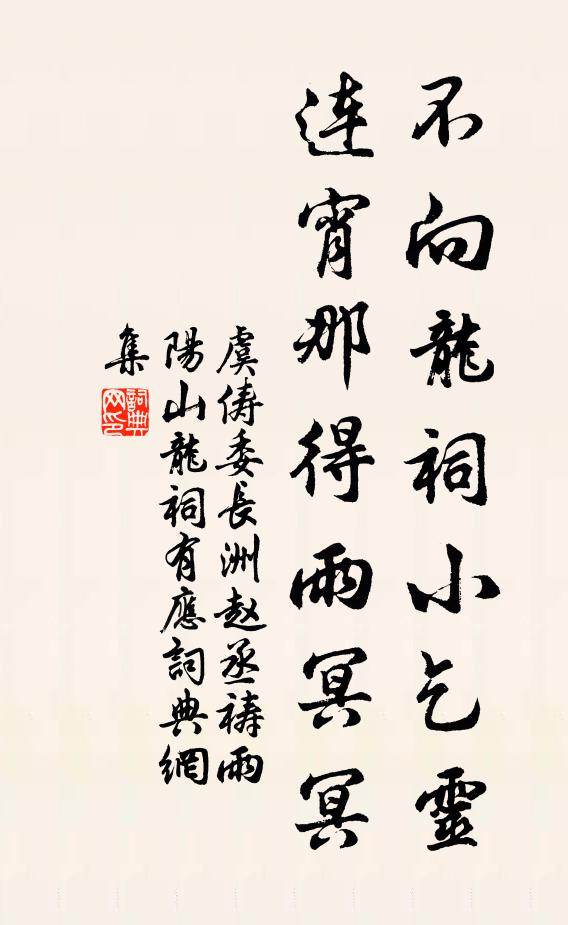 不向龍祠小乞靈
連宵那得雨冥冥
虞儔委長洲赵丞禱雨
陽山龍祠有應詞典網
集
詞典網印